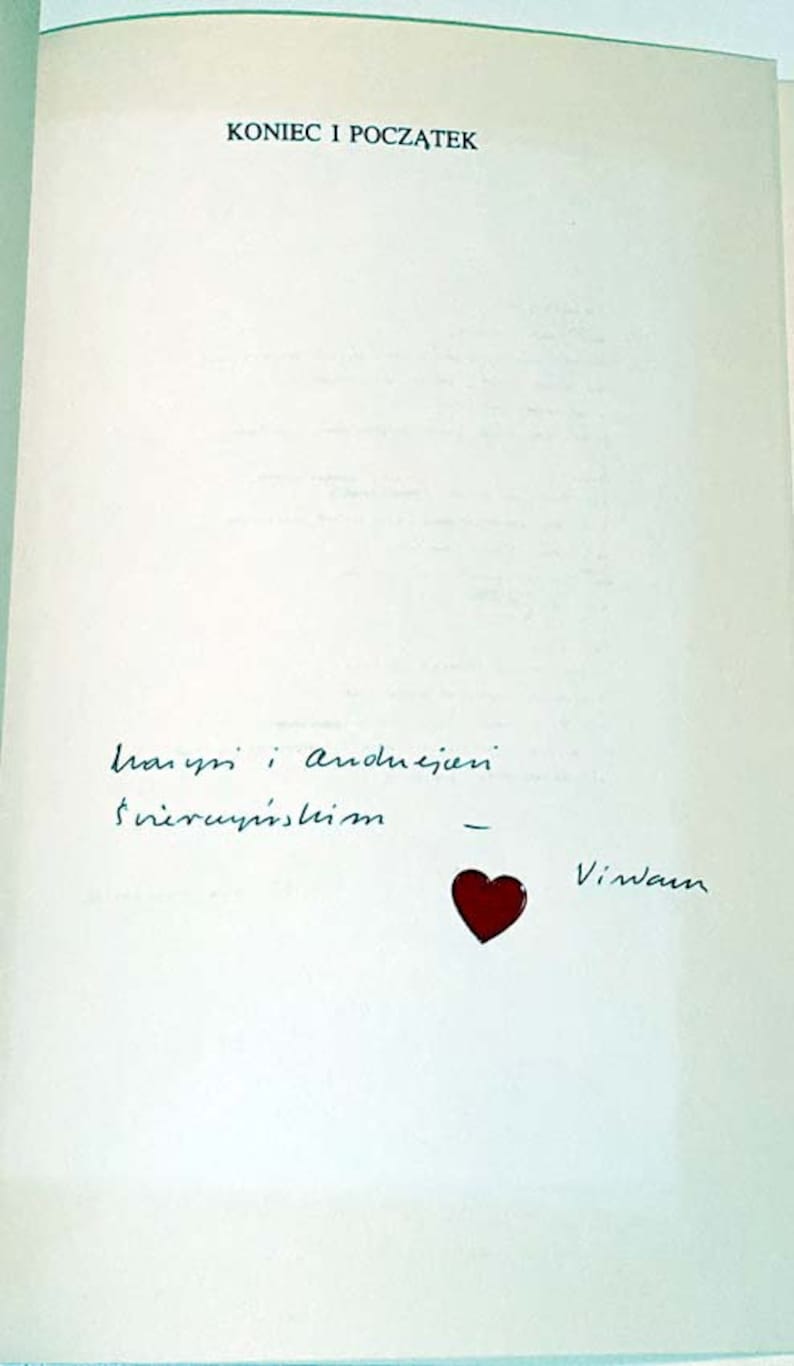 KONIEC I POCZĄTEK
Marysi i Andrzejowi
Świerczyńskim –